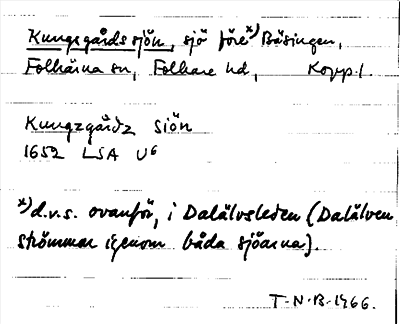 Kungsgårdssjön, sjö före x) Bäsingen,
Folkärna sn, Folkare hd, Kopp. l.
Kungzgårdz Siön
1652 LSA U6
x) d.v.s. ovanför, i Dalälvsleden (Dalälven
strömmar igenom båda sjöarna).
T-N-B-1966.